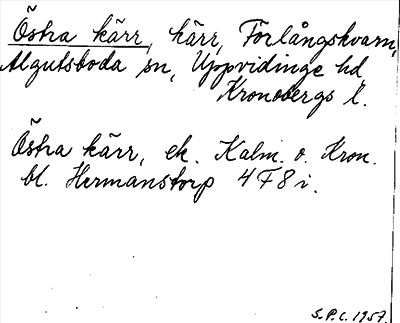 Östra kärr, kärr, Förlångskvarn,
Algutsboda sn, Uppvidinge hd
Kronobergs l.
Östra kärr, ek. Kalm. o. Kron.
bl. Hermanstorp 4F8i.
S.P.C. 1957.